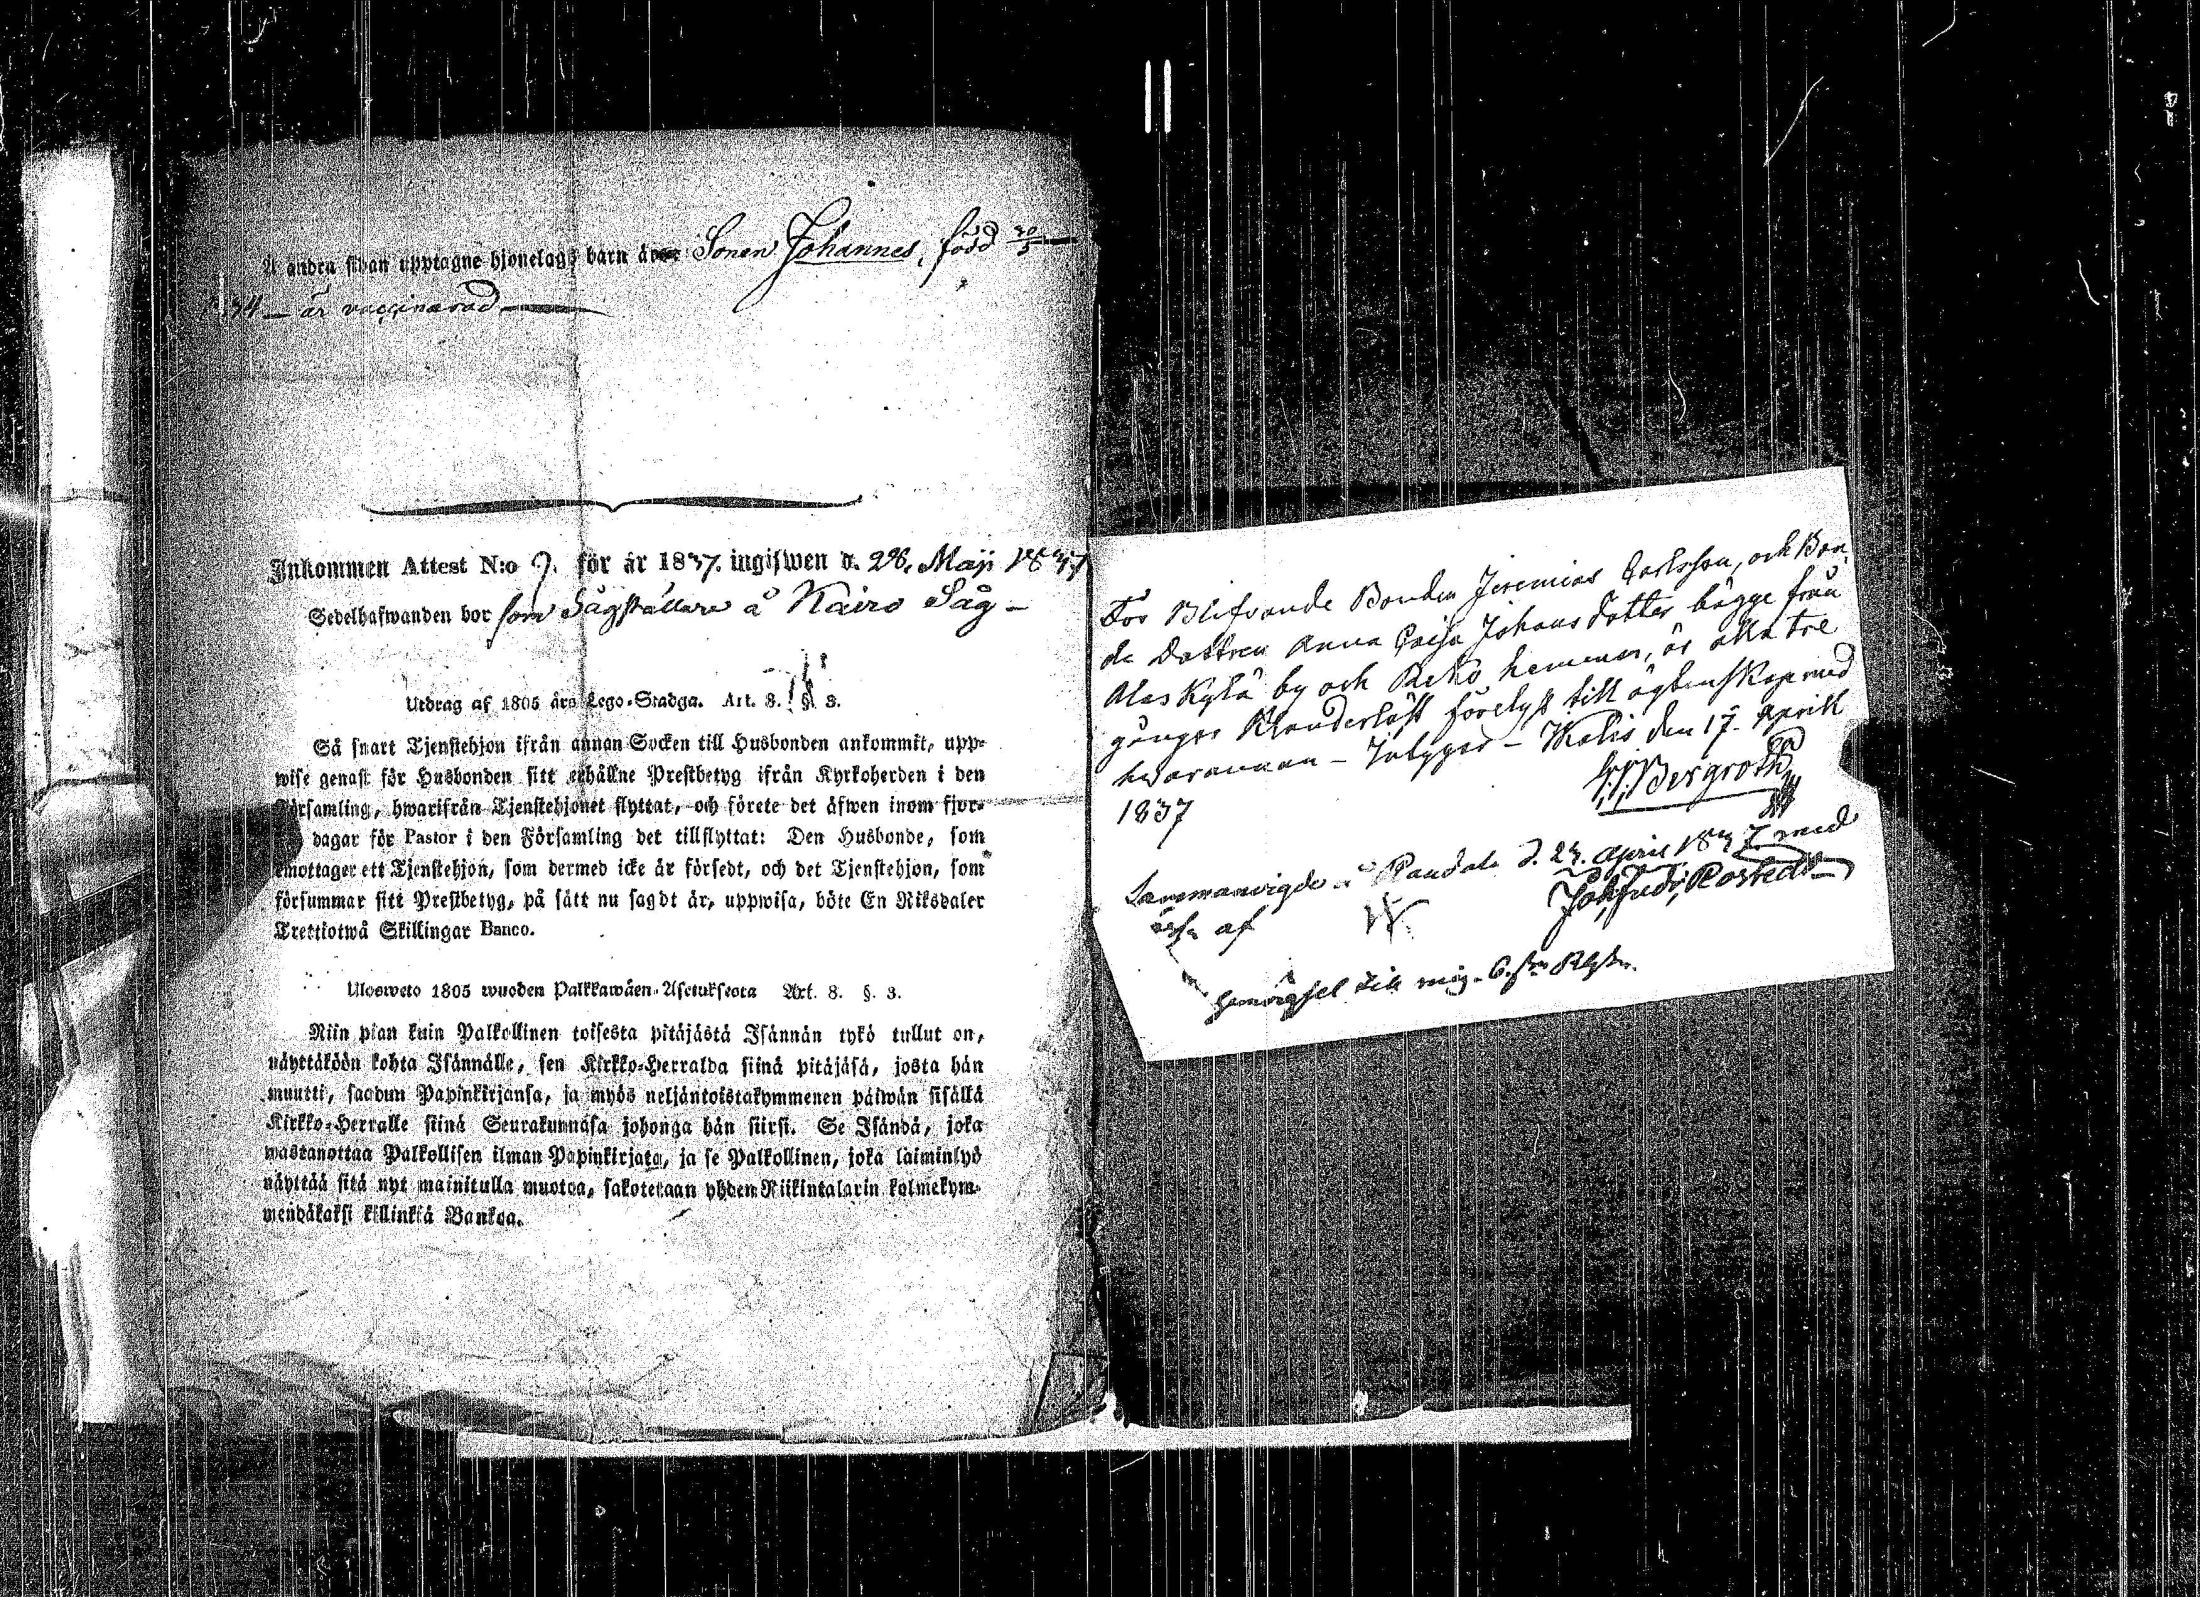 Å andra sidan upptagne hjonelags barn äro: Sonen Johannes, född 30/5
34 — är vaccinerad —
Inkommen Attest N:o 9. för år 1837. ingifwen d. 28. Maji 1837
Sedelhafwanden bor som Sågställare å Kairo Såg —
Utdrag af 1805 års Lego-Stadga. Art. 8. § 3.
Så snart Tjenstehjon ifrån annan Socken till Husbonden ankommit, upp-
wise genast för Husbonden sitt erhållne Prestbetyg ifrån Kyrkoherden i den
Församling, hwarifrån Tjenstehjonet flyttat, och förete det äfwen inom fjor-
dagar för Pastor i den Församling det tillflyttat: Den Husbonde, som
emottager ett Tjenstehjon, som dermed icke är försedt, och det Tjenstehjon, som
försummar sitt Prestbetyg, på sätt nu sagdt är, uppwisa, böte En Riksdaler
Trettiotwå Skillingar Banco.
Ulosweto 1805 wuoden Palkkawäen-Asetuksesta Art. 8. §. 3.
Niin pian kuin Palkollinen toisesta pitäjästä Isännän tykö tullut on,
näyttäköön kohta Isännälle, sen Kirkko-Herralda siinä pitäjäsä, josta hän
muutti, saadun Papinkirjansa, ja myös neljäntoistakymmenen päiwän sisällä
Kirkko-Herralle siinä Seurakunnasa johonga hän siirsi. Se Isändä, joka
wastanottaa Palkollisen ilman Papinkirjata, ja se Palkollinen, joka laiminlyö
näyttää sitä nyt mainitulla muotoa, sakotetaan yhden Riikintalarin kolmekym-
mendäkaksi killinkiä Bankoa.
För Blifvande Bonden Jeremias Carlsson, och Bon-
de Dottren Anna Caisa Johans dotter bägge från
Alas Kylä by och hemman, är alla tre
gånger förelyst till ägtenskap med
hvarannan — Intygar — den 17. April
1837 Bergroth
Sammanvigde å Pandala d. 24. April 1837 med
af
till mig. 6.